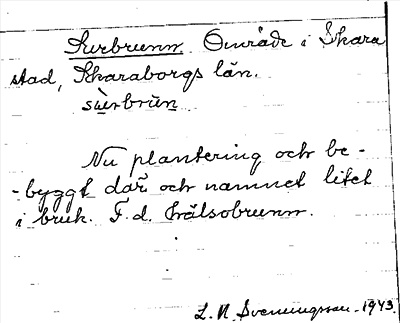 Surbrunn. Område i Skara
stad, Skaraborgs län.
sùrbrún
Nu plantering och be-
-byggt där och namnet litet
i bruk. F. d. hälsobrunn.
L. N. Svenungsson. 1943.